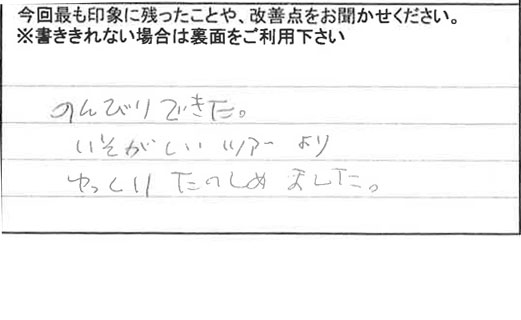 今回最も印象に残ったことや、改善点をお聞かせください。
※書ききれない場合は裏面をご利用下さい
のんびりできた。
いそがしいツアーより
ゆっくりたのしめました。